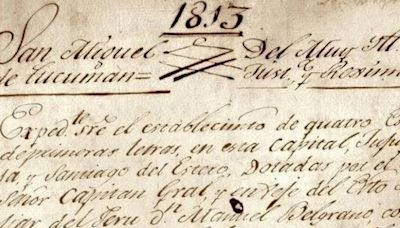 1813
San Miguel Del Muy Ill.
de tucuman= Just. y Reximi
Exped.te s͞re el establecim.to de quatro
de primeras letras, en esta Capital,
y Santiago del Estero, Dotadas por el
Señor Capitan Gral, y en Xefe del Exto
del Peru D.n Manuel Belgrano, co